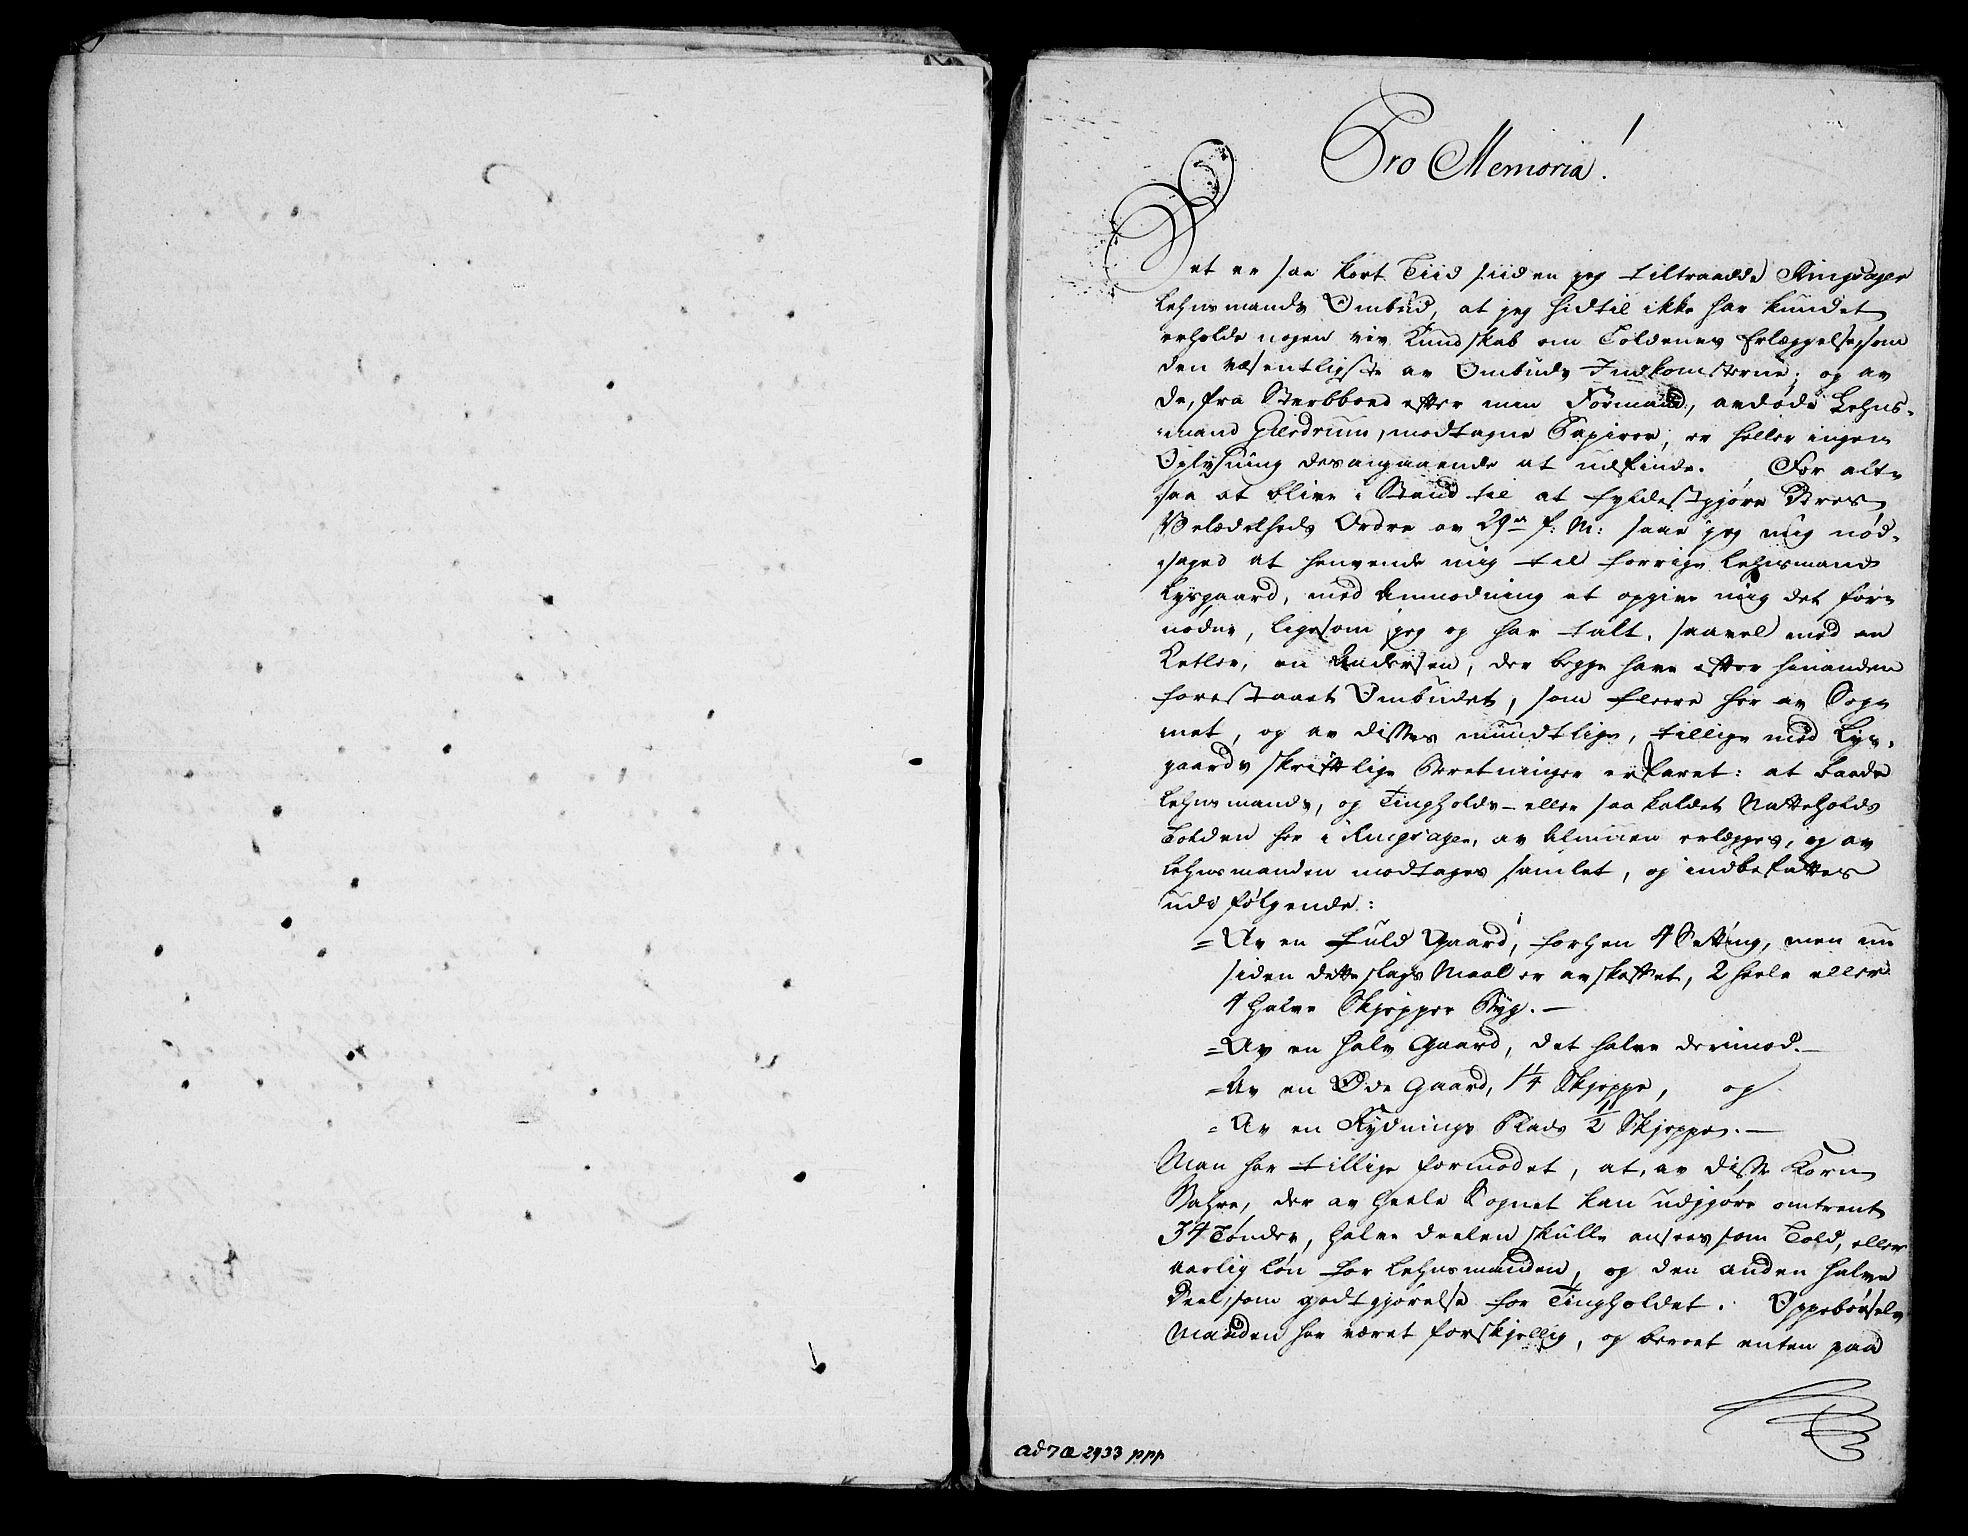 Pro Memoria!
Det er saa kort Tiid siiden jeg tiltraadde Ringsager
Lehnsmands Ombud, at jeg hidtil ikke har kundet
erholde nogen vis Kundskab om Toldenes Erlæggelse, som
den væsentligste av Ombuds Indkomsterne; og av
de, fra Sterbboed efter min Formand, avdøde Lehns-
mand Gierdrum, modtagne Papirer, er heller ingen
Oplysning desangaaende at udfinde. For alt-
saa at blive i Stand til at fyldestgjøre Deres
Velædelheds Ordre av 29de f: M: saae jeg mig nød-
saged at henvende mig til forrige Lehnsmand
Lysgaard, med Anmodning at opgive mig det for-
nødne, ligesom jeg og har talt, saavel med en
Ketler, en Andersen, der begge have efter hinanden
forestaaet Ombudet, som fleere her av Sog-
net, og av disses mundtlige, tillige med Lys-
gaards skriftlige Beretninger erfaret: at baade
Lehnsmands, og Tingholds- eller saa kaldet Natteholds
Tolden her i Ringsager, av Almuen erlægges, og av
Lehnsmanden modtages samlet, og indbefattes
udi følgende:
= Av en fuld Gaard, forhen 4 Setting, men nu
siden dette slags Maal er avskaffet, 2 heele eller
4 halve Skjepper Byg. —
= Av en halv Gaard, det halve derimod. —
= Av en Øde Gaard, 1/4 Skjeppe, og
= Av en Rydnings Plads 1/2 Skjeppe. —
Man har tillige formodet, at, av disse Korn
Vahre, der av heele Sognet kan udgjøre omtrent
34 Tønder, halve deelen skulle ansees som Told, eller
aarlig Løn for Lehnsmanden, og den anden halve
Deel, som godtgjørelse for Tingholdet. Oppebørsels
Maaden har været forskjellig, og beroet enten paa
ad 7 Æ 2933 ppp